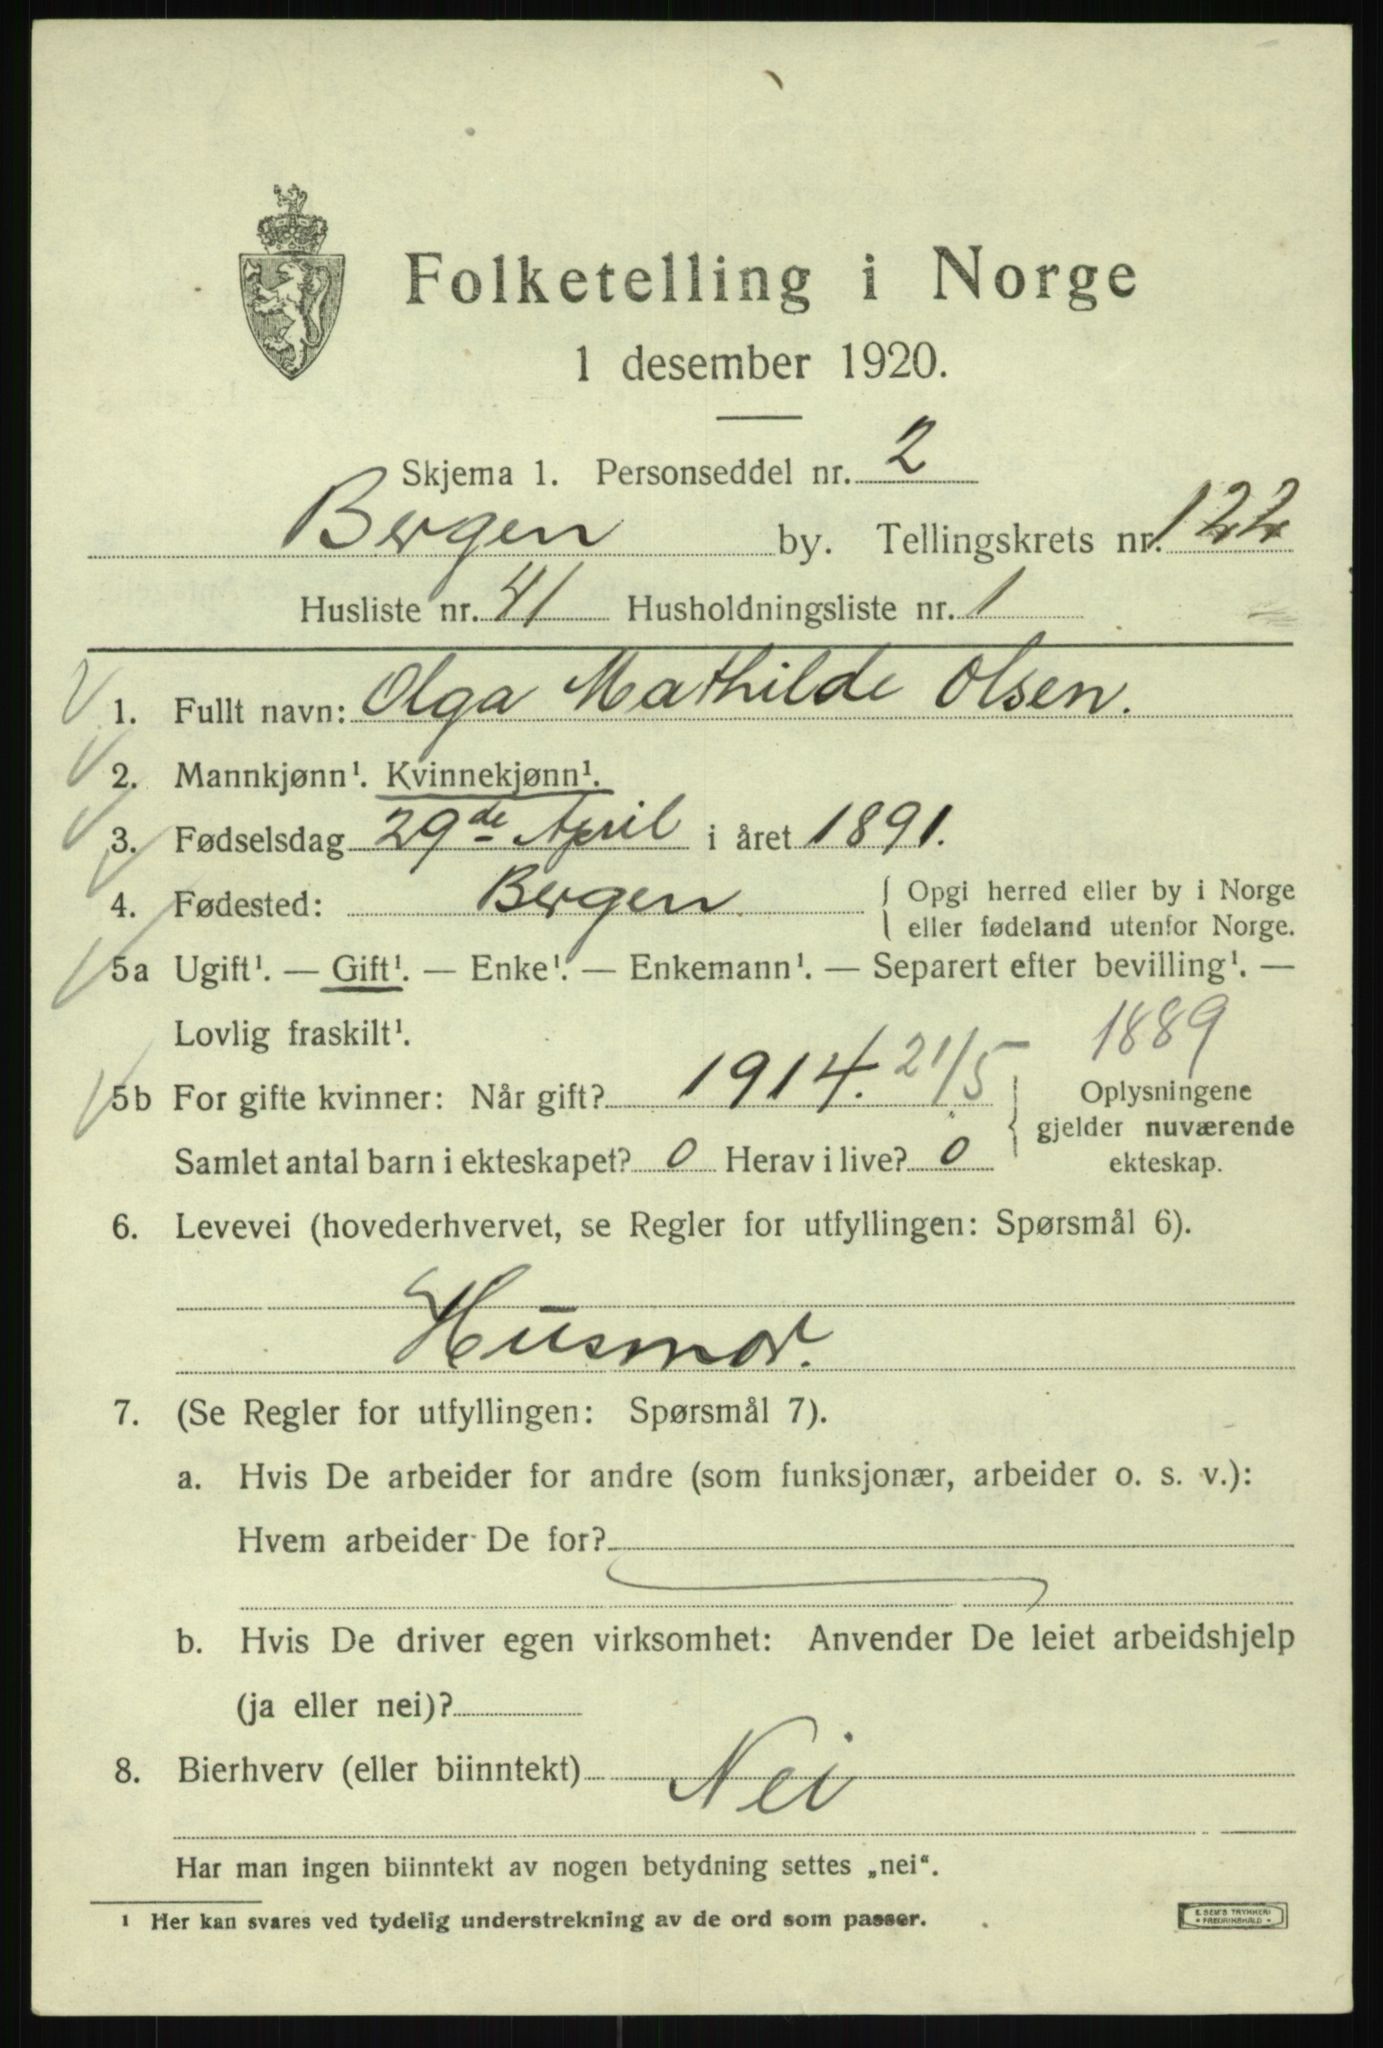 Folketelling i Norge
1 desember 1920.
Skjema 1. Personseddel nr. 2
Bergen by. Tellingskrets nr. 122
Husliste nr. 41 Husholdningsliste nr. 1
1. Fullt navn: Olga Mathilde Olsen.
2. Mannkjønn¹. Kvinnekjønn¹.
3. Fødselsdag 29de April i året 1891.
4. Fødested: Bergen { Opgi herred eller by i Norge
eller fødeland utenfor Norge.
5a Ugift¹. — Gift¹. — Enke¹. — Enkemann¹. — Separert efter bevilling¹. —
Lovlig fraskilt¹.
1889
5b For gifte kvinner: Når gift? 1914. 21/5 { Oplysningene
gjelder nuværende
Samlet antal barn i ekteskapet? 0 Herav i live? 0 ekteskap.
6. Levevei (hovederhvervet, se Regler for utfyllingen: Spørsmål 6).
Husmor.
7. (Se Regler for utfyllingen: Spørsmål 7).
a. Hvis De arbeider for andre (som funksjonær, arbeider o. s. v.):
Hvem arbeider De for?
b. Hvis De driver egen virksomhet: Anvender De leiet arbeidshjelp
(ja eller nei)?
8. Bierhverv (eller biinntekt) Nei
Har man ingen biinntekt av nogen betydning settes „nei“.
¹ Her kan svares ved tydelig understrekning av de ord som passer.
E. SEM'S TRYKKERI
• FREDRIKSHALD •